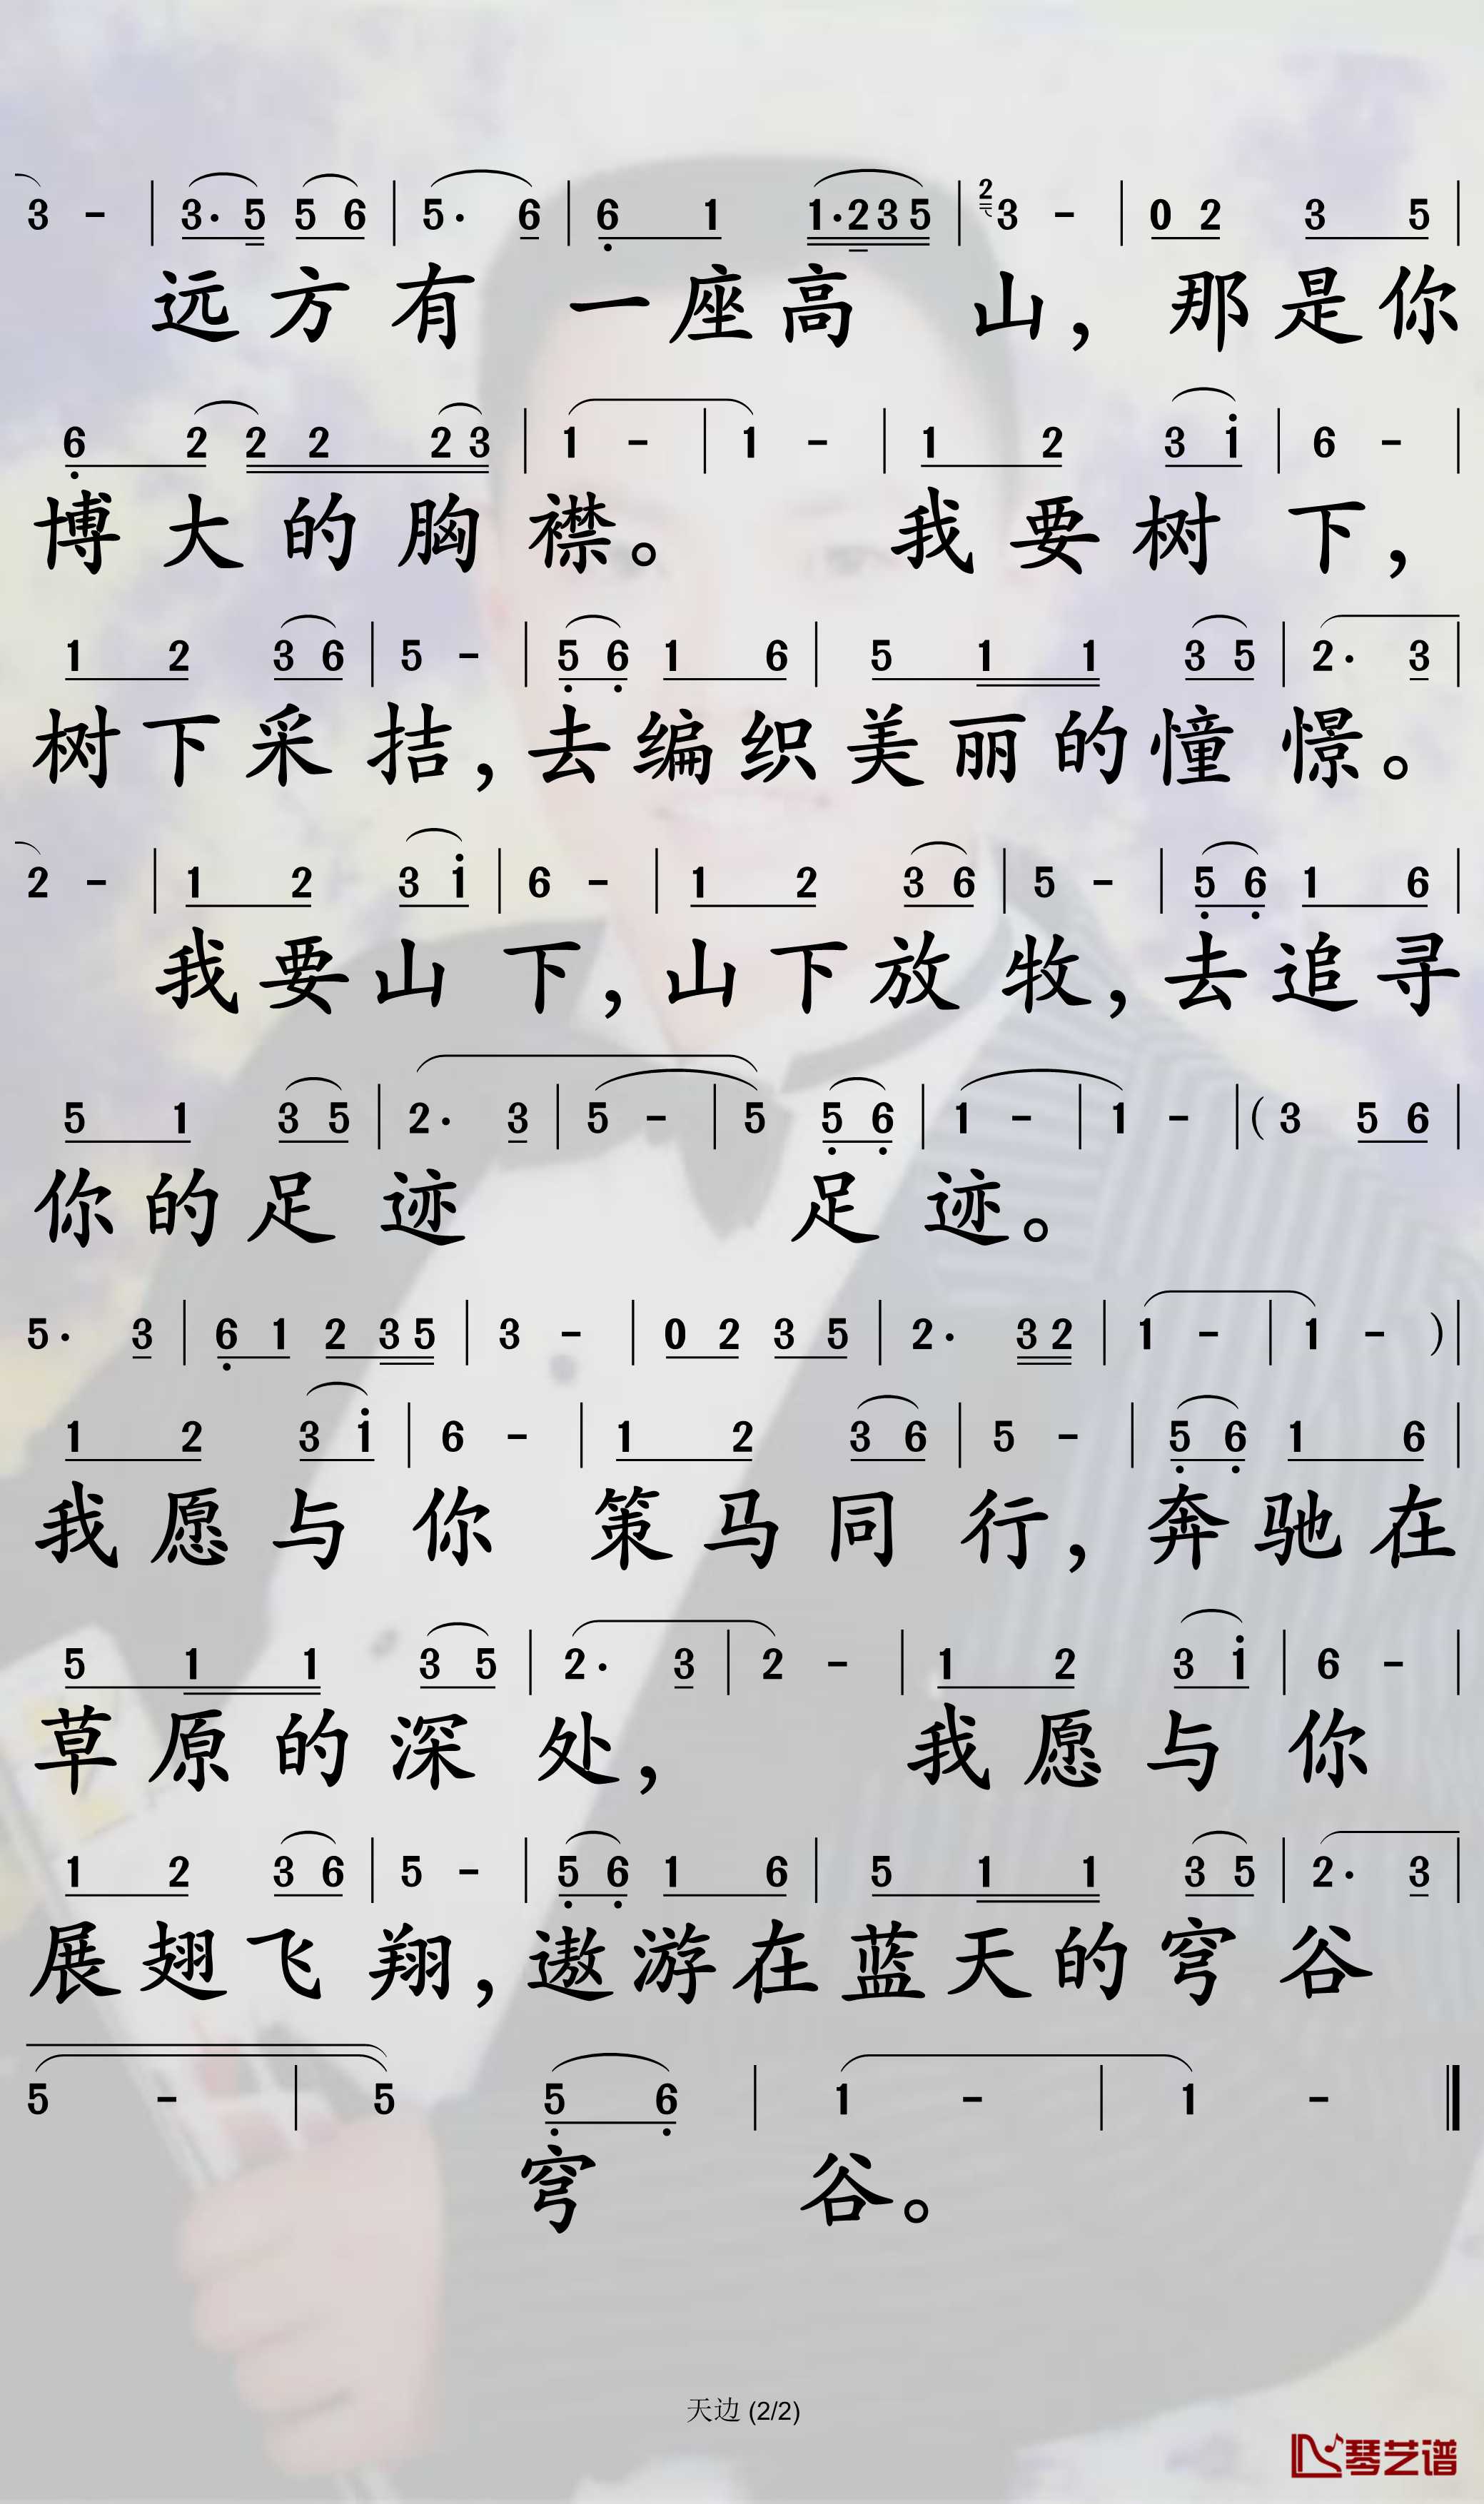 3 - | 3. 5 5 6 | 5. 6 | 6 1 1.2 3 5 | 2 3 - | 0 2 3 5 |
远方有一座高山，那是你
6 2 2 2 2 3 | 1 - | 1 - | 1 2 3 1 | 6 - |
博大的胸襟。我要树下，
1 2 3 6 | 5 - | 5 6 1 6 | 5 1 1 3 5 | 2. 3 |
树下采拮，去编织美丽的憧憬。
2 - | 1 2 3 1 | 6 - | 1 2 3 6 | 5 - | 5 6 1 6 |
我要山下，山下放牧，去追寻
5 1 3 5 | 2. 3 | 5 - | 5 5 6 | 1 - | 1 - | (3 5 6 |
你的足迹 足迹。
5. 3 | 6 1 2 3 5 | 3 - | 0 2 3 5 | 2. 3 2 | 1 - | 1 - ) |
1 2 3 1 | 6 - | 1 2 3 6 | 5 - | 5 6 1 6 |
我愿与你 策马同行，奔驰在
5 1 1 3 5 | 2. 3 | 2 - | 1 2 3 1 | 6 - |
草原的深处，我愿与你
1 2 3 6 | 5 - | 5 6 1 6 | 5 1 1 3 5 | 2. 3 |
展翅飞翔，遨游在蓝天的穹谷
5 - | 5 5 6 | 1 - | 1 - ‖
穹谷。
天边 (2/2)
琴艺谱